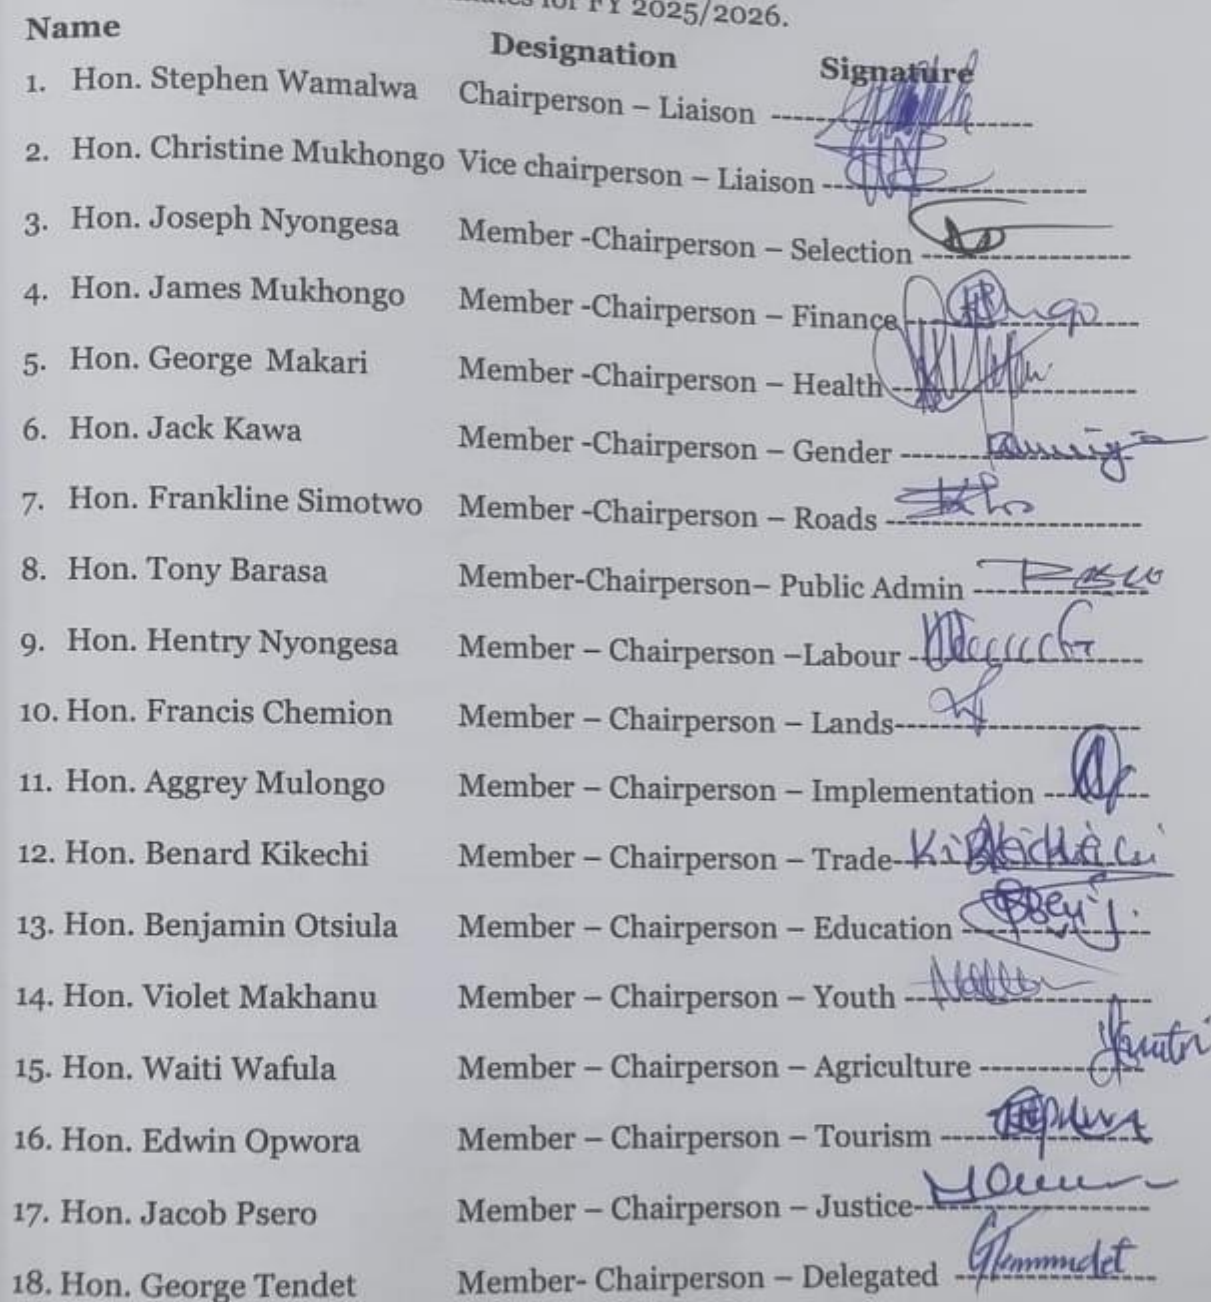 for FY 2025/2026.
Name Designation Signature
1. Hon. Stephen Wamalwa Chairperson – Liaison
2. Hon. Christine Mukhongo Vice chairperson – Liaison
3. Hon. Joseph Nyongesa Member -Chairperson – Selection
4. Hon. James Mukhongo Member -Chairperson – Finance
5. Hon. George Makari Member -Chairperson – Health
6. Hon. Jack Kawa Member -Chairperson – Gender
7. Hon. Frankline Simotwo Member -Chairperson – Roads
8. Hon. Tony Barasa Member-Chairperson– Public Admin
9. Hon. Hentry Nyongesa Member – Chairperson –Labour
10. Hon. Francis Chemion Member – Chairperson – Lands
11. Hon. Aggrey Mulongo Member – Chairperson – Implementation
12. Hon. Benard Kikechi Member – Chairperson – Trade
13. Hon. Benjamin Otsiula Member – Chairperson – Education
14. Hon. Violet Makhanu Member – Chairperson – Youth
15. Hon. Waiti Wafula Member – Chairperson – Agriculture
16. Hon. Edwin Opwora Member – Chairperson – Tourism
17. Hon. Jacob Psero Member – Chairperson – Justice
18. Hon. George Tendet Member- Chairperson – Delegated